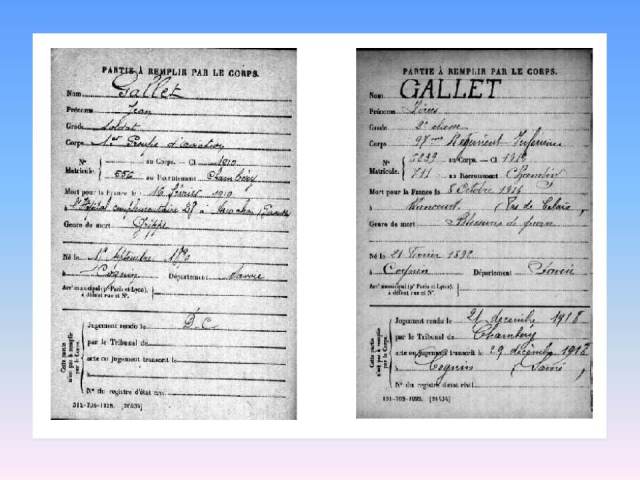 PARTIE À REMPLIR PAR LE CORPS.
Nom Gallet
Prénoms Jean
Grade soldat
Corps 1er Groupe d'aviation
N° au Corps. — Cl. 1910
Matricule. 556 au Recrutement Chambéry
Mort pour la France le 16 février 1919
à l'Hôpital complémentaire
Genre de mort Grippe
Né le 1er septembre 1890
à Cognin Département Savoie
Arrt municipal (pr Paris et Lyon),
à défaut rue et N°.
Cette partie
n'est pas à remplir
par le Corps.
Jugement rendu le D.C
par le Tribunal de
acte ou jugement transcrit le
à
N° du registre d'état civil
PARTIE À REMPLIR PAR LE CORPS.
Nom GALLET
Prénoms
Grade 2e classe
Corps 97ème Régiment Infanterie
N° au Corps. — Cl. 1912
Matricule. au Recrutement Chambéry
Mort pour la France le 8 Octobre 1914
à Pas de Calais
Genre de mort Blessures de guerre
Né le 21 Février 1892
à Cognin Département Savoie
Arrt municipal (pr Paris et Lyon),
à défaut rue et N°.
Cette partie
n'est pas à remplir
par le Corps.
Jugement rendu le 21 décembre 1918
par le Tribunal de Chambéry
acte ou jugement transcrit le 29 décembre 1918
à Cognin Savoie
N° du registre d'état civil